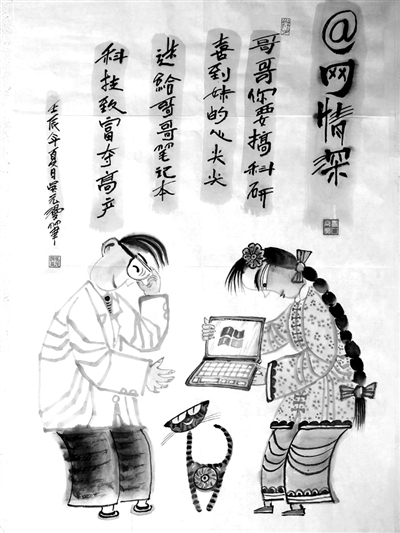 @网情深
哥哥你要搞科研
喜到妹的心尖尖
送给哥哥笔记本
科技致富夺高产
壬辰年夏日